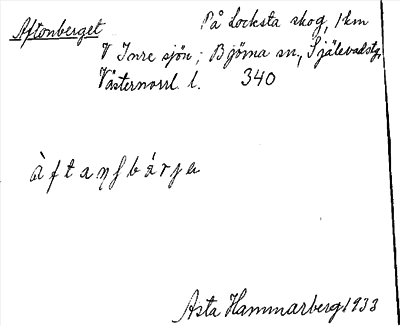 Aftonberget
På Locksta skog, 1 km
V Inre sjön; Björna sn, Själevadstg,
Västernorrl. l. 340
àftaŋʃbárja
Asta Hammarberg 1933